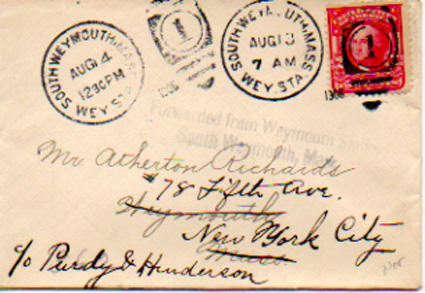 SOUTH WEYMOUTH, MASS.
AUG 14
1230 PM
WEY. STA.
1
SOUTH WEYMOUTH, MASS.
AUG 13
7 AM
WEY. STA.
1
Forwarded from Weymouth
South Weymouth, Mass.
Mr Atherton Richards
78 Fifth Ave.
Weymouth
New York City
Mass.
c/o Purdy & Henderson